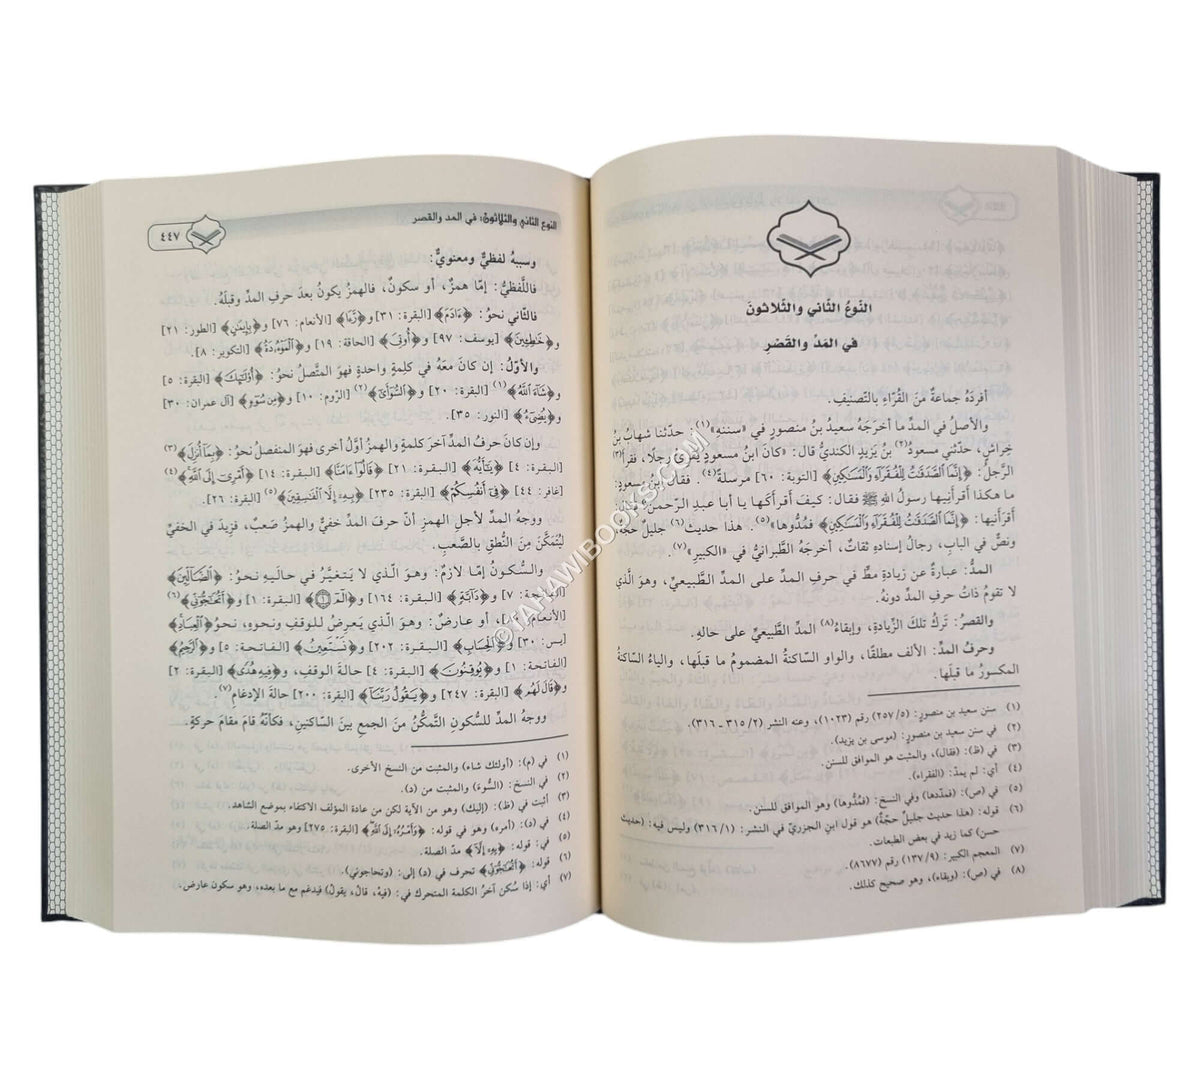 النَّوعُ الثَّاني والثَّلاثونَ
في المَدِّ والقَصْرِ
أفردَهُ جماعةٌ منَ القُرَّاءِ بالتّصنيفِ.
والأصلُ في المدِّ ما أخرَجَهُ سعيدُ بنُ منصورٍ في «سننه»(١). حدّثنا شهابُ بنُ
خِراشٍ، حدّثني مسعودُ(٢) بنُ يزيدَ الكنديُّ قال: «كانَ ابنُ مسعودٍ يُقرئُ رجلًا، فقرأَ(٣)
الرَّجلُ: ﴿إِنَّمَا ٱلصَّدَقَٰتُ لِلۡفُقَرَآءِ وَٱلۡمَسَٰكِينِ﴾ [التوبة: ٦٠] مرسلةً(٤). فقال ابنُ مسعودٍ:
ما هكذا أقرأَنيها رسولُ اللهِ ﷺ فقال: كيفَ أقرأَكَها يا أبا عبدِ الرّحمنِ؟ فقال:
أقرأَنيها: ﴿إِنَّمَا ٱلصَّدَقَٰتُ لِلۡفُقَرَآءِ وَٱلۡمَسَٰكِينِ﴾ فمُدُّوها»(٥). هذا حديث(٦) جليلٌ حجّةٌ،
ونصٌّ في البابِ، رجالُ إسنادِهِ ثقاتٌ، أخرجَهُ الطَّبرانيُّ في «الكبيرِ»(٧).
المدُّ: عبارةٌ عن زيادةِ مطٍّ في حرفِ المدِّ على المدِّ الطَّبيعيِّ، وهوَ الَّذي
لا تقومُ ذاتُ حرفِ المدِّ دونَهُ.
والقصرُ: تركُ تلكَ الزِّيادةِ، وإبقاءُ(٨) المدِّ الطَّبيعيِّ على حالِهِ.
وحرفُ المدِّ: الألف مطلقًا، والواو السّاكنةُ المضمومُ ما قبلَها، والياءُ السّاكنةُ
المكسورُ ما قبلَها.
(١) سنن سعيد بن منصور: (٢٥٧/٥) رقم (١٠٢٣)، وعنه النشر (٣١٥/٢ - ٣١٦).
(٢) في سنن سعيد بن منصور: (موسى بن يزيد).
(٣) في (ظ): (فقال)، والمثبت هو الموافق للسنن.
(٤) أي: لم يمدّ: (الفقراء).
(٥) في (ص): (فمدّها) وفي النسخ: (فمُدُّوها) وهو الموافق للسنن.
(٦) قوله: (هذا حديث جليلٌ حجّةٌ) هو قول ابن الجزريّ في النشر: (٣١٦/١) وليس فيه: (حديث
حسن) كما زيد في بعض الطبعات.
(٧) المعجم الكبير: (١٣٧/٩) رقم (٨٦٧٧).
(٨) في (ص): (وبقاء)، وهو صحيح كذلك.
النوع الثاني والثلاثون: في المد والقصر
٤٤٧
وسببهُ لفظيٌّ ومعنويٌّ:
فاللَّفظيُّ: إمّا همزٌ، أو سكونٌ، فالهمزُ يكونُ بعدَ حرفِ المدِّ وقبلَهُ.
فالثّاني نحوُ: ﴿ءَادَمَ﴾ [البقرة: ٣١] و﴿رَءَا﴾ [الأنعام: ٧٦] و﴿بِإِيمَٰنٍ﴾ [الطور: ٢١]
و﴿خَٰطِـِٔينَ﴾ [يوسف: ٩٧] و﴿أُوتِيَ﴾ [الحاقة: ١٩] و﴿ٱلۡمَوۡءُۥدَةُ﴾ [التكوير: ٨].
والأوّلُ: إن كانَ معَهُ في كلمةٍ واحدةٍ فهوَ المتَّصلُ نحوُ: ﴿أُوْلَٰٓئِكَ﴾ [البقرة: ٥]
و﴿شَآءَ ٱللَّهُ﴾(١) [البقرة: ٢٠] و﴿ٱلسُّوٓأَىٰٓ﴾(٢) [الرّوم: ١٠] و﴿مِن سُوٓءٖ﴾ [آل عمران: ٣٠]
و﴿يُضِيٓءُ﴾ [النور: ٣٥].
وإن كانَ حرفُ المدِّ آخرَ كلمةٍ والهمزُ أوَّلَ أخرى فهوَ المنفصلُ نحوُ: ﴿بِمَآ أُنزِلَ﴾(٣)
[البقرة: ٤] ﴿يَٰٓأَيُّهَا﴾ [البقرة: ٢١] ﴿قَالُوٓاْ ءَامَنَّا﴾ [البقرة: ١٤] ﴿أَمۡرِيٓ إِلَى ٱللَّهِ﴾(٤)
[غافر: ٤٤] ﴿فِيٓ أَنفُسِكُمۡ﴾ [البقرة: ٢٣٥] ﴿بِهِۦٓ إِلَّا ٱلۡفَٰسِقِينَ﴾(٥) [البقرة: ٢٦].
ووجهُ المدِّ لأجلِ الهمزِ أنَّ حرفَ المدِّ خفيٌّ والهمزُ صَعبٌ، فزيدَ في الخَفيِّ
ليُتَمَكَّنَ مِنَ النُّطقِ بالصَّعبِ.
والسُّكونُ إمّا لازمٌ: وهوَ الّذي لا يَتغيَّرُ في حاليهِ نحوُ: ﴿ٱلضَّآلِّينَ﴾
[الفاتحة: ٧] و﴿دَآبَّةٖ﴾ [البقرة: ١٦٤] و﴿الٓمٓ﴾ [البقرة: ١] و﴿أَتُحَٰٓجُّوٓنِّي﴾(٦)
[الأنعام: ٨٠]، أو عارضٌ: وهوَ الّذي يَعرِضُ للوقفِ ونحوِهِ، نحوُ ﴿ٱلۡعِبَادِ﴾
[يس: ٣٠] و﴿ٱلۡحِسَابِ﴾ [البقرة: ٢٠٢] و﴿نَسۡتَعِينُ﴾ [الفاتحة: ٥] و﴿ٱلرَّحِيمِ﴾
[الفاتحة: ١] و﴿يُوقِنُونَ﴾ [البقرة: ٤] حالةَ الوقفِ، و﴿فِيهِ هُدٗى﴾ [البقرة: ٢]
و﴿قَالَ لَهُمۡ﴾ [البقرة: ٢٤٧] و﴿يَقُولُ رَبَّنَآ﴾ [البقرة: ٢٠٠] حالةَ الإدغامِ(٧).
ووجهُ المدِّ للسُّكونِ التَّمكُّنُ منَ الجمعِ بينَ السّاكنينِ، فكأنّهُ قامَ مقامَ حركةٍ.
(١) في (م): (أولئك شاء)، والمثبت من النسخ الأخرى.
(٢) في النسخ: (السُّوءَ) والمثبت من (د).
(٣) أثبت في (ظ): (إليك) وهو من الآية لكن من عادة المؤلف الاكتفاء بموضع الشاهد.
(٤) في (د): (أمره) وهو في قوله: ﴿وَأَمۡرُهُۥٓ إِلَى ٱللَّهِ﴾ [البقرة: ٢٧٥] وهو مدّ الصلة.
(٥) في قوله: ﴿بِهِۦٓ إِلَّا﴾ مدّ الصلة.
(٦) قوله: ﴿أَتُحَٰٓجُّوٓنِّي﴾ تحرف في (د) إلى: (وتحاجوني).
(٧) أي: إذا سُكن آخرُ الكلمة المتحرك في: (فيهِ، قالَ، يقولُ) فيدغم مع ما بعده، وهو سكون عارض.
©TAHAWIBOOKS.COM